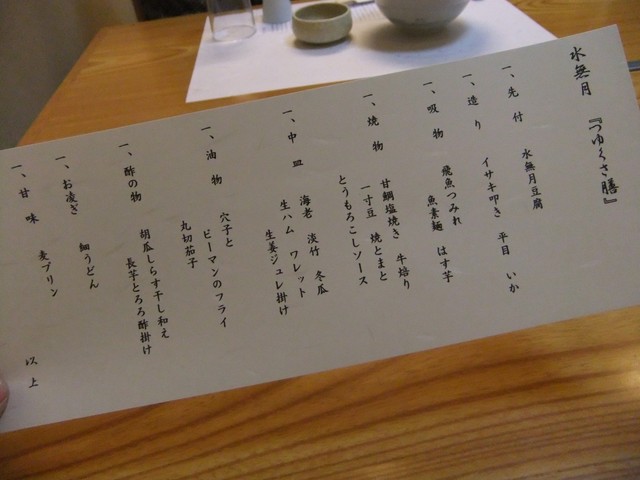 水無月 『つゆくさ膳』
一、先付 水無月豆腐
一、造り イサキ叩き 平目 いか
一、吸物 飛魚つみれ
魚素麺 はす芋
一、焼物 甘鯛塩焼き 牛焙り
一寸豆 焼とまと
とうもろこしソース
一、中皿 海老 淡竹 冬瓜
生ハム ワレット
生姜ジュレ掛け
一、油物 穴子と
ピーマンのフライ
丸切茄子
一、酢の物 胡瓜しらす干し和え
長芋とろろ酢掛け
一、お凌ぎ 細うどん
一、甘味 麦プリン
以上